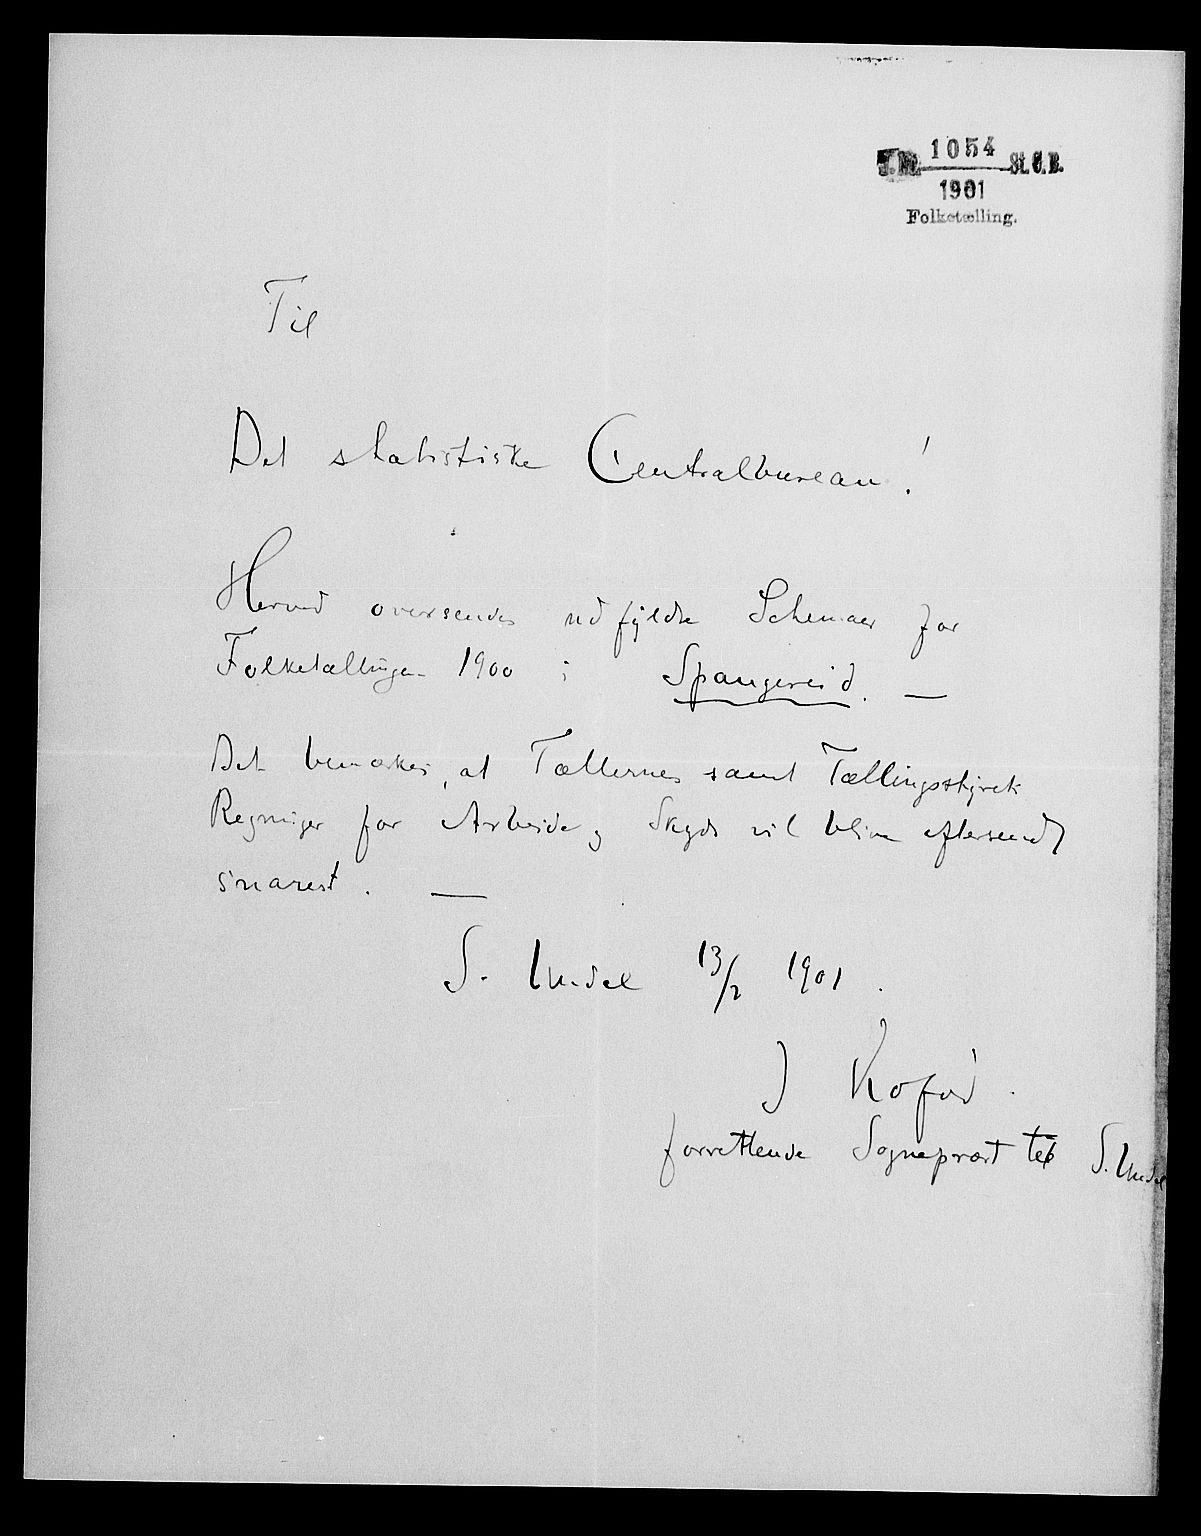 J. No. 1054 St. C. B.
1901
Folketælling.
Til
Det statistiske Centralbureau!
Herved oversendes udfyldte Schemaer for
Folketællingen 1900 i Spangereid. —
Det bemærkes, at Tællernes samt Tællingsstyrets
Regninger for Arbeide og Skyds vil blive eftersendt
snarest. —
S. Undal 13/2 1901.
J Kofod.
forrettende Sogneprest til S. Undal